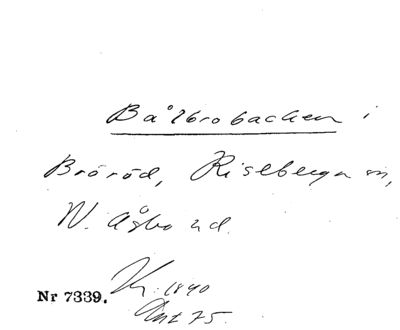 Bålbrobacken i
Bröröd, Riseberga sn,
N. Åsbo hd.
Kr. 1840
Nr 7339. Ant 75.